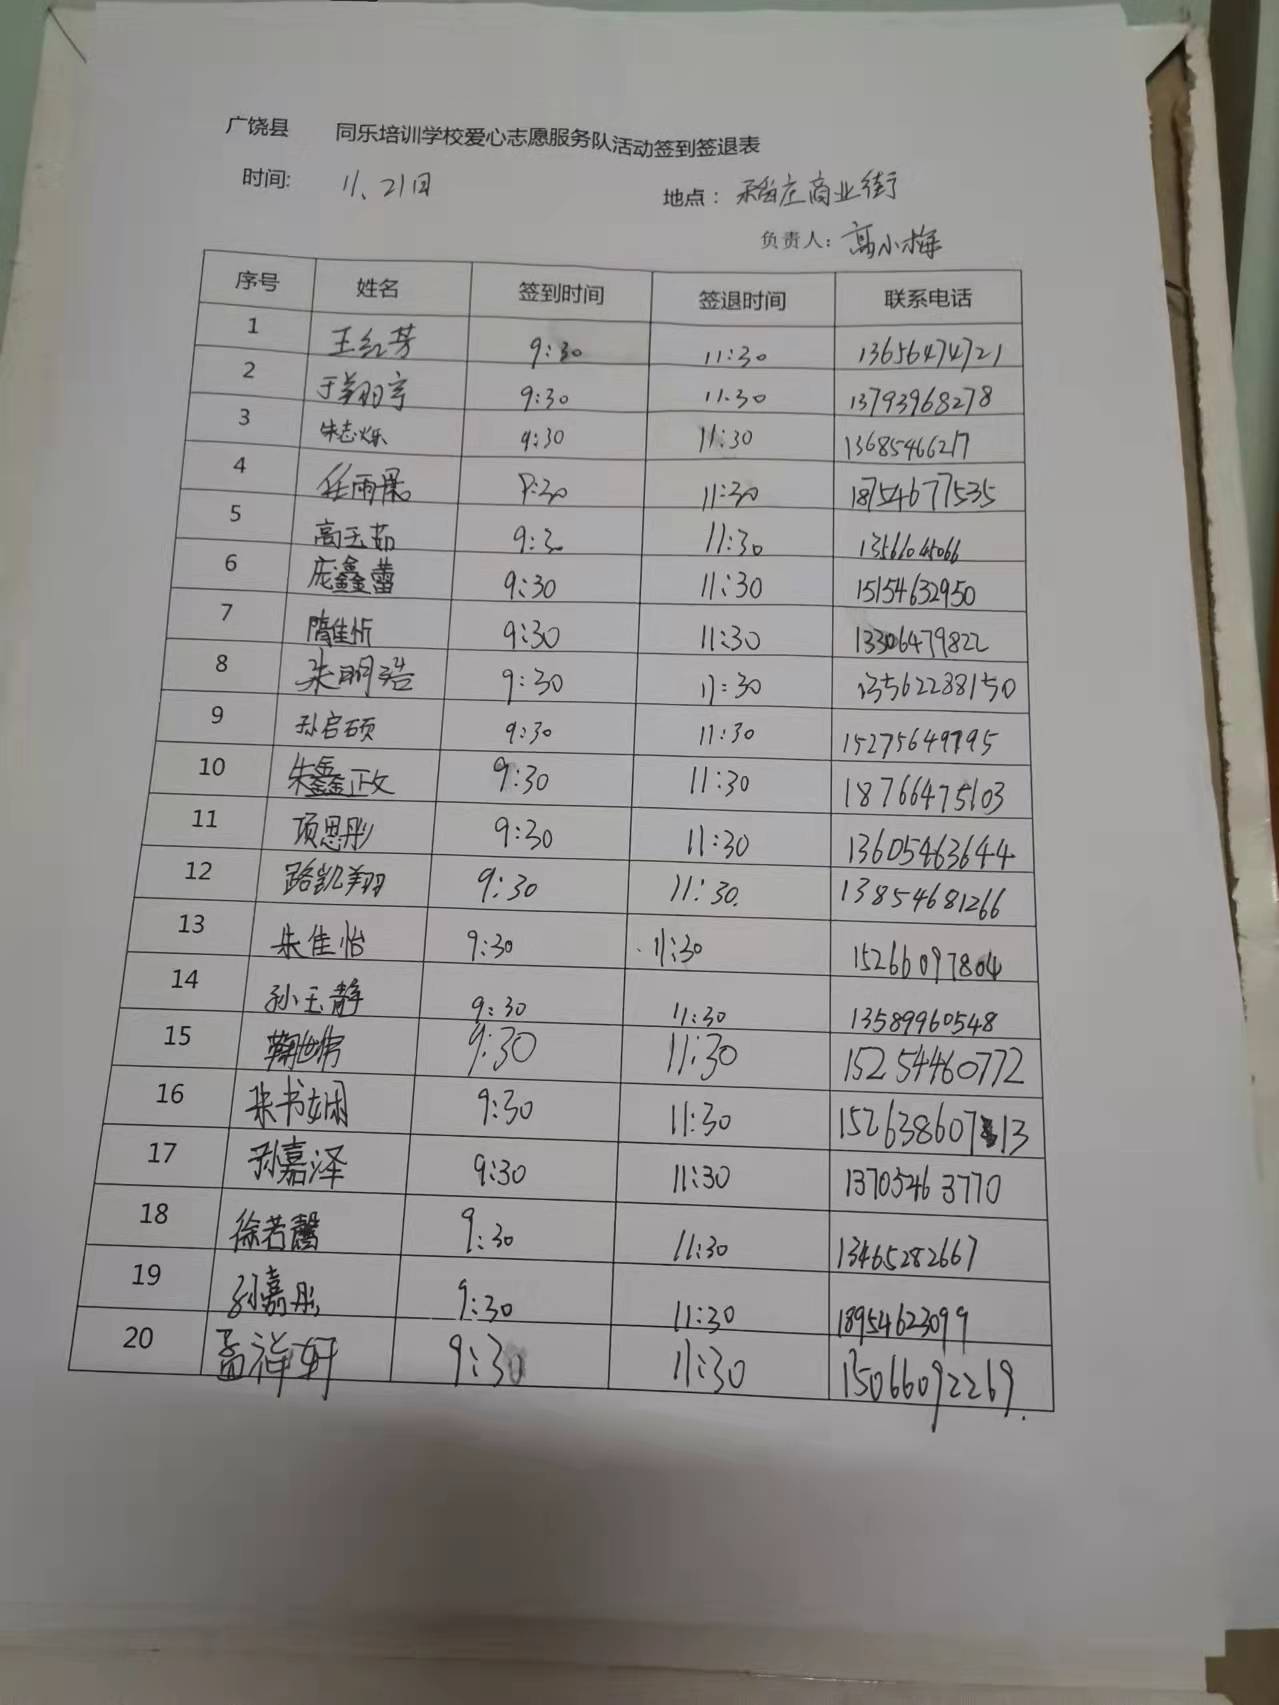 广饶县 同乐培训学校爱心志愿服务队活动签到签退表
时间: 11、21日 地点：稻庄商业街
负责人：高小梅
序号 姓名 签到时间 签退时间 联系电话
1 王红芳 9:30 11:30 13656474721
2 于翔宇 9:30 11.30 13793968278
3 朱志烁 9:30 11:30 13685466217
4 任雨果 9:30 11:30 18754677535
5 高玉茹 9:30 11:30
6 庞鑫蕾 9:30 11:30 15154632950
7 隋佳忻 9:30 11:30 13306479822
8 朱明浩 9:30 11:30 13562288150
9 孙启硕 9:30 11:30 15275649795
10 朱鑫正文 9:30 11:30 18766475103
11 项思彤 9:30 11:30 13605463644
12 路凯翔 9:30 11:30. 13854681266
13 朱佳怡 9:30 11:30 15266097804
14 孙玉静 9:30 11:30 13589960548
15 9:30 11:30 15254460772
16 朱书娴 9:30 11:30 15263860713
17 孙嘉泽 9:30 11:30 13705463770
18 徐若馨 9:30 11:30 13465282667
19 孙嘉彤 9:30 11:30 18954623099
20 孟祥轩 9:30 11:30 15066092269.